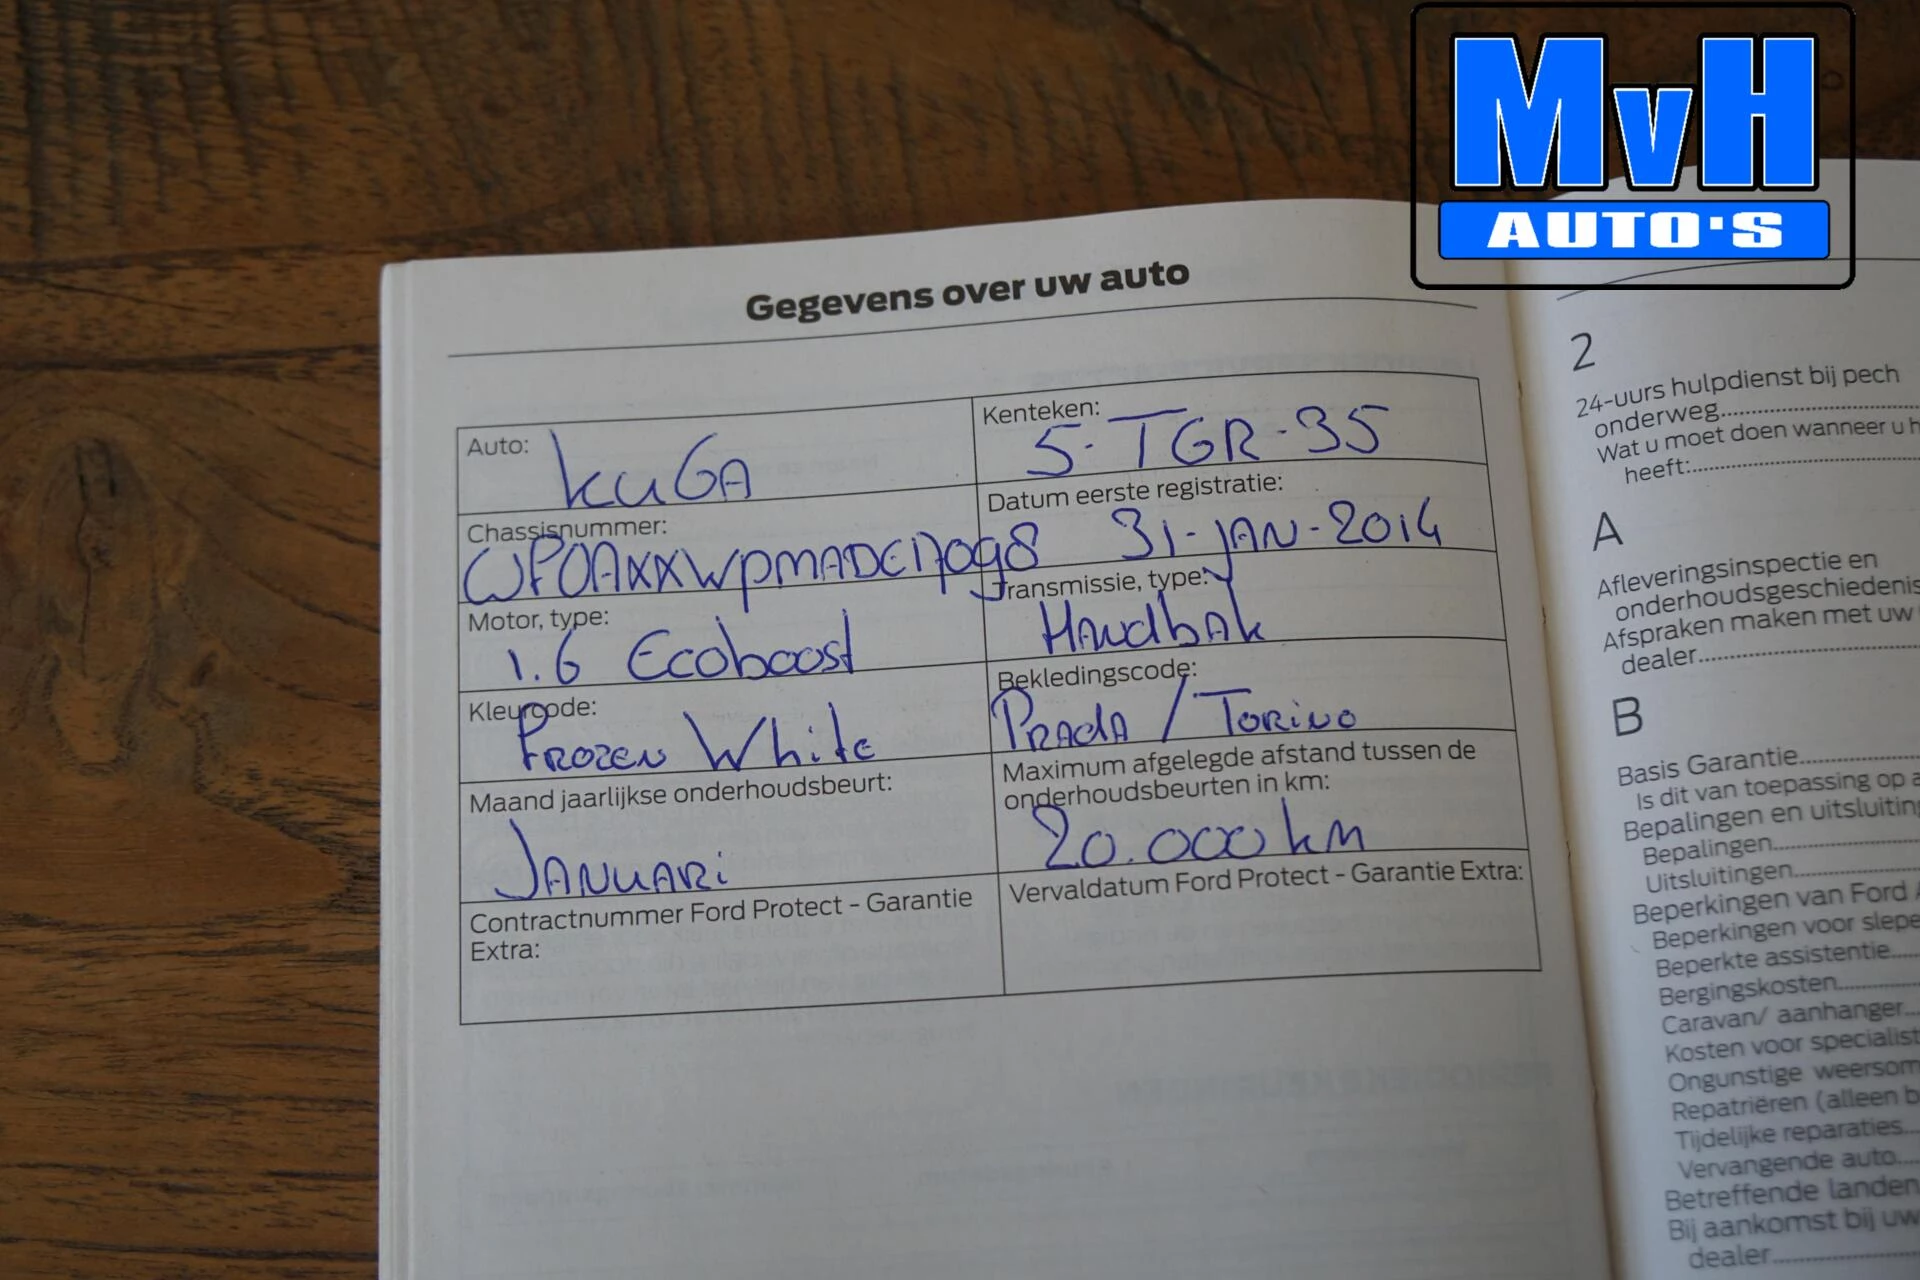 MvH
AUTO'S
Gegevens over uw auto
Auto: KUGA
Kenteken: 5-TGR-35
Chassisnummer: WF0AXXWPMADC17098
Datum eerste registratie: 31-JAN-2014
Motor, type: 1.6 Ecoboost
Transmissie, type: Handbak
Kleurcode: Frozen White
Bekledingscode: Prada / Torino
Maand jaarlijkse onderhoudsbeurt:
Januari
Maximum afgelegde afstand tussen de
onderhoudsbeurten in km:
20.000 km
Contractnummer Ford Protect - Garantie
Extra:
Vervaldatum Ford Protect - Garantie Extra:
2
24-uurs hulpdienst bij pech
onderweg
Wat u moet doen wanneer u
heeft:
A
Afleveringsinspectie en
onderhoudsgeschiedenis
Afspraken maken met uw
dealer
B
Basis Garantie
Is dit van toepassing op
Bepalingen en
Bepalingen
Uitsluitingen
Beperkingen van Ford
Beperkingen voor
Beperkte assistentie
Bergingskosten
Caravan/ aanhanger
Kosten voor
Ongunstige
Repatriëren (alleen
Tijdelijke reparaties
Vervangende auto
Betreffende landen
Bij aankomst bij uw
dealer